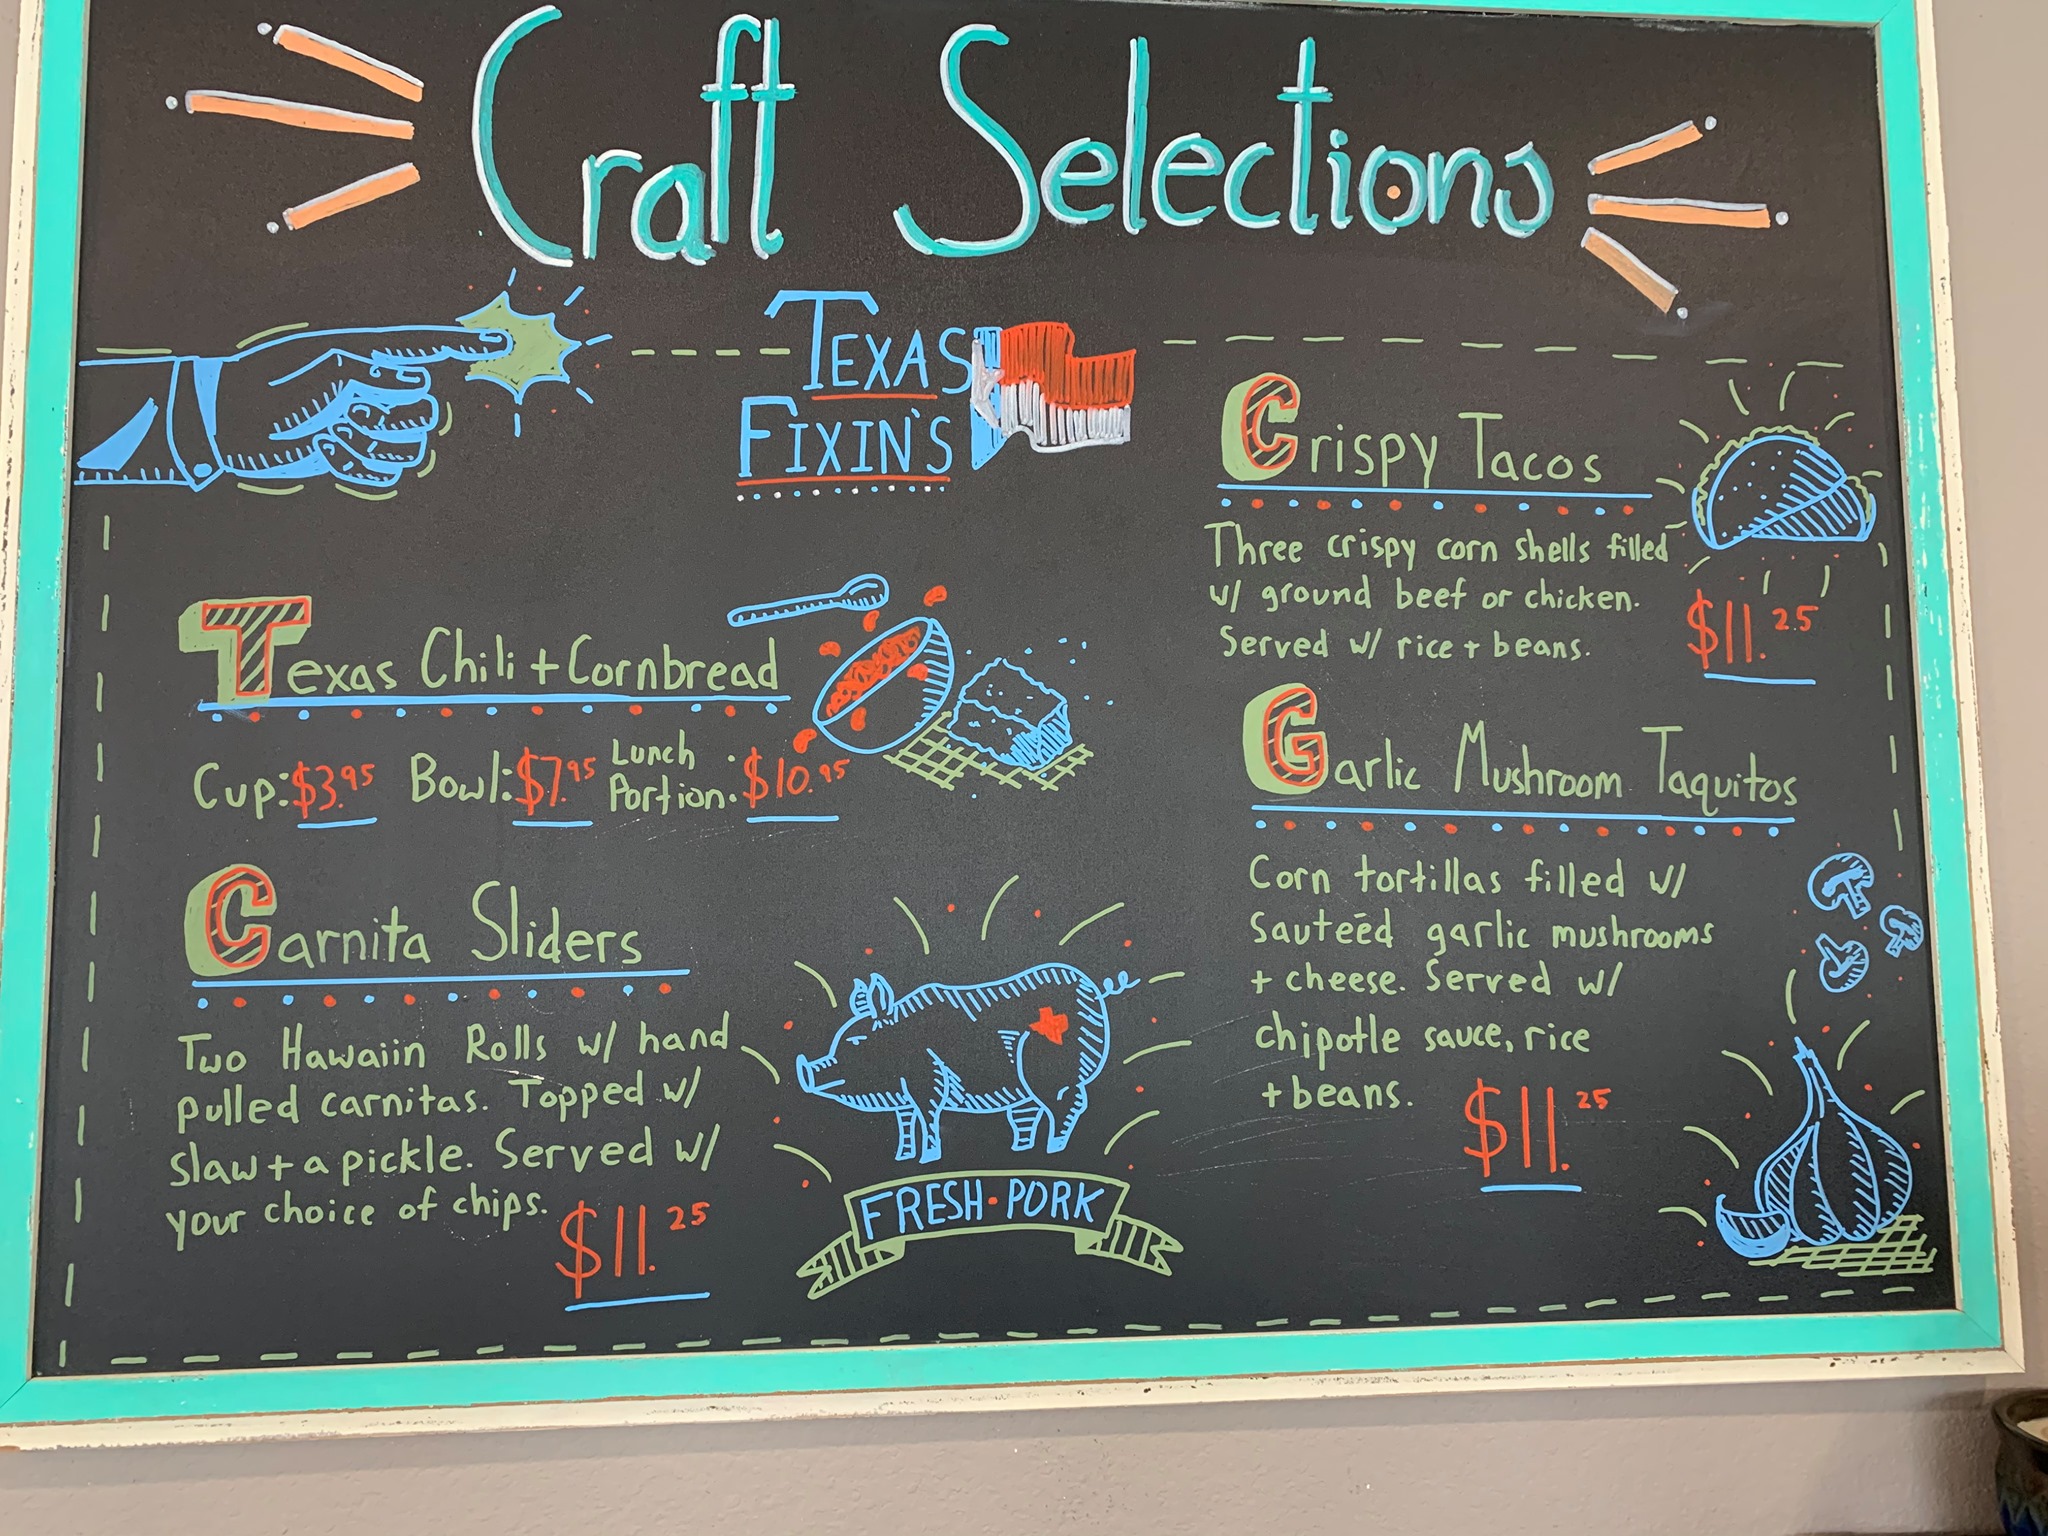 Craft Selections
Texas
Fixin's
Texas Chili + Cornbread
Cup: $3.95 Bowl: $7.95 Lunch
Portion: $10.95
Carnita Sliders
Two Hawaiin Rolls w/ hand
pulled carnitas. Topped w/
slaw + a pickle. Served w/
your choice of chips.
$11.25
FRESH • PORK
Crispy Tacos
Three crispy corn shells filled
w/ ground beef or chicken.
Served w/ rice + beans.
$11.25
Garlic Mushroom Taquitos
Corn tortillas filled w/
Sauteēd garlic mushrooms
+ cheese. Served w/
chipotle sauce, rice
+ beans.
$11.25